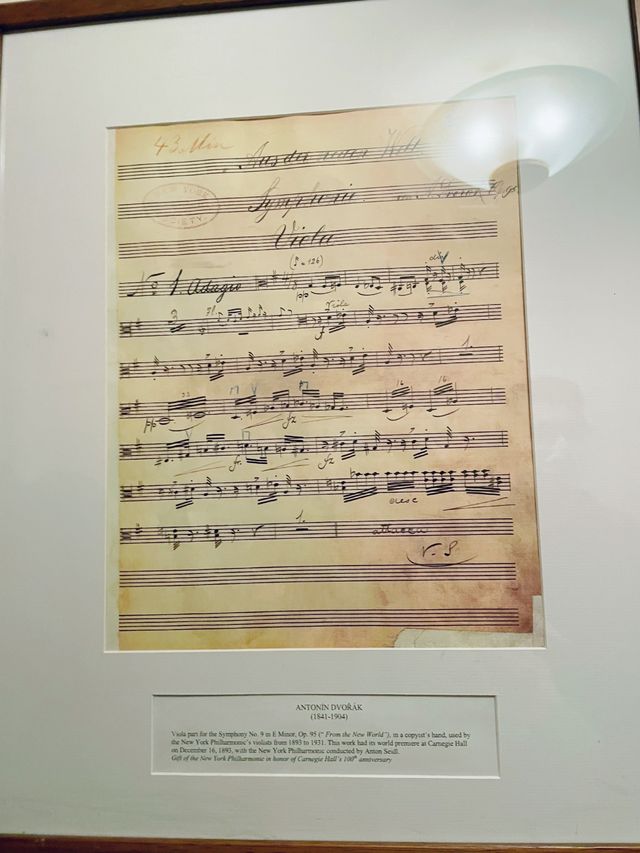 43. Min
Aus der neuen Welt
Symphonie
Viola
No. 1 Adagio
(♪=126)
pp
div
3
Viola
f
1
pp
fz
16
16
fz
fz
cresc
1.
attacca
V. S.
NEW YORK
ANTONÍN DVOŘÁK
(1841-1904)
Viola part for the Symphony No. 9 in E Minor, Op. 95 (“ From the New World”), in a copyist's hand, used by
the New York Philharmonic's violists from 1893 to 1931. This work had its world premiere at Carnegie Hall
on December 16, 1893, with the New York Philharmonic conducted by Anton Seidl.
Gift of the New York Philharmonic in honor of Carnegie Hall's 100th anniversary